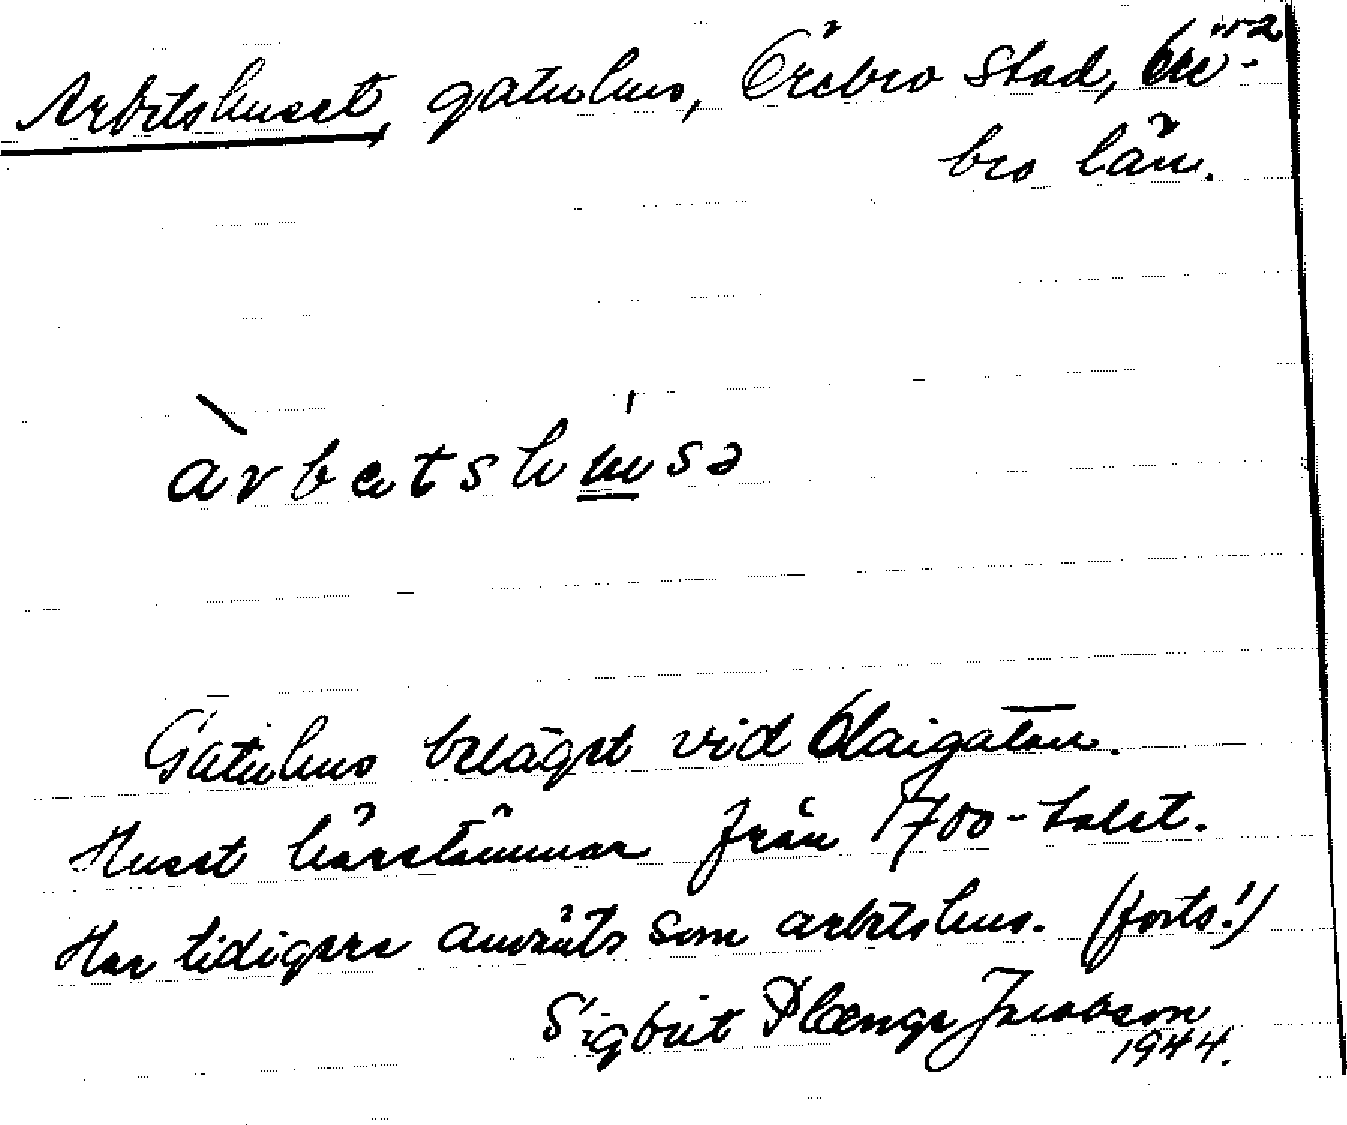 Arbetshuset, gatuhus, Örebro stad, Öre-
bro län.
àrbetshu̲sə
Gatuhus beläget vid Olaigatan.
Huset härstammar från 1700-talet.
Har tidigare använts som arbetshus. (forts!)
Sigbrit Plænge Jacobson
1944.